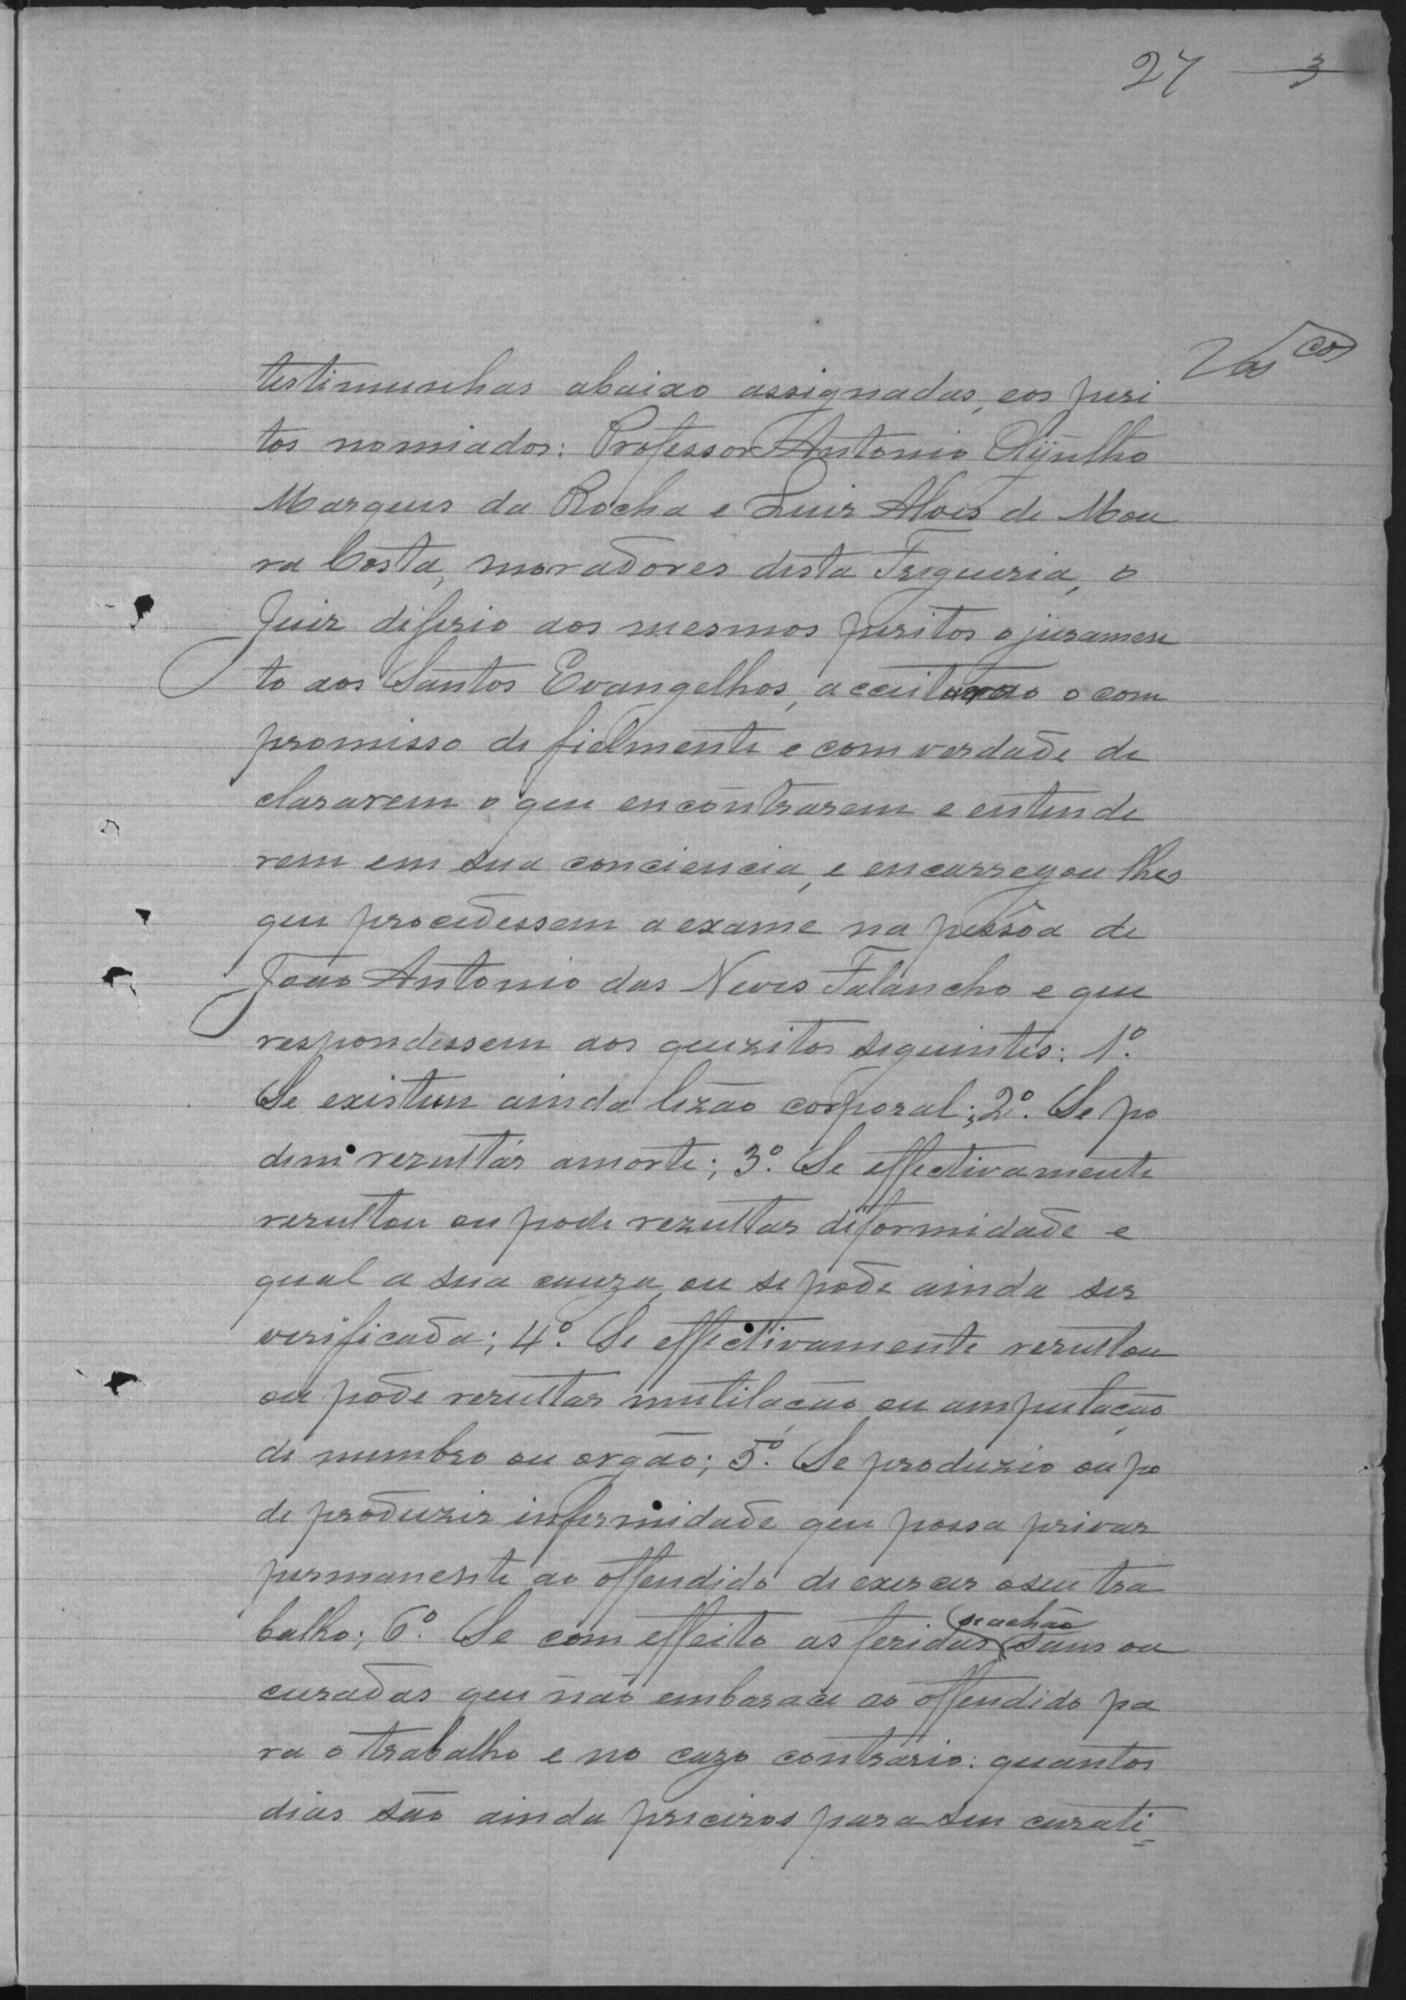 27 3
Vasco
testimunhas abaixo assignadas, eos peri
tos nomiados: Professor Antonio
Marques da Rocha e Luiz Alves de Mou
ra Costa, moradores desta Freguezia, o
Juiz diferio aos mesmos peritos o juramen
to aos Santos Evangelhos, acceitarão o com
promisso de fielmente e com verdade de
clararem o que encontrarem e entende
rem em sua conciencia, e encarregou lhes
que procedessem a exame na pessôa de
João Antonio das Neves Falancho e que
respondessem aos quezitos seguintes: 1º.
Se existem ainda lezão corporal; 2º. Se po
dem rezultár amorte; 3º. Se effectivamente
rezultou ou pode rezultar diformidade e
qual a sua cauza, ou se póde ainda ser
verificada; 4º. Se effectivamente rezultou
ou póde rezultar mutilação ou amputação
de membro ou orgão; 5º. Se produzio ou po
de produzir infermidade que possa privar
permanente ao offendido de exercer oseu tra
balho; 6º. Se com effeito as feridas se achão sans ou
curadas que não embarace ao offendido pa
ra o trabalho e no cazo contrario: quantos
dias são ainda precizos para seu curati=